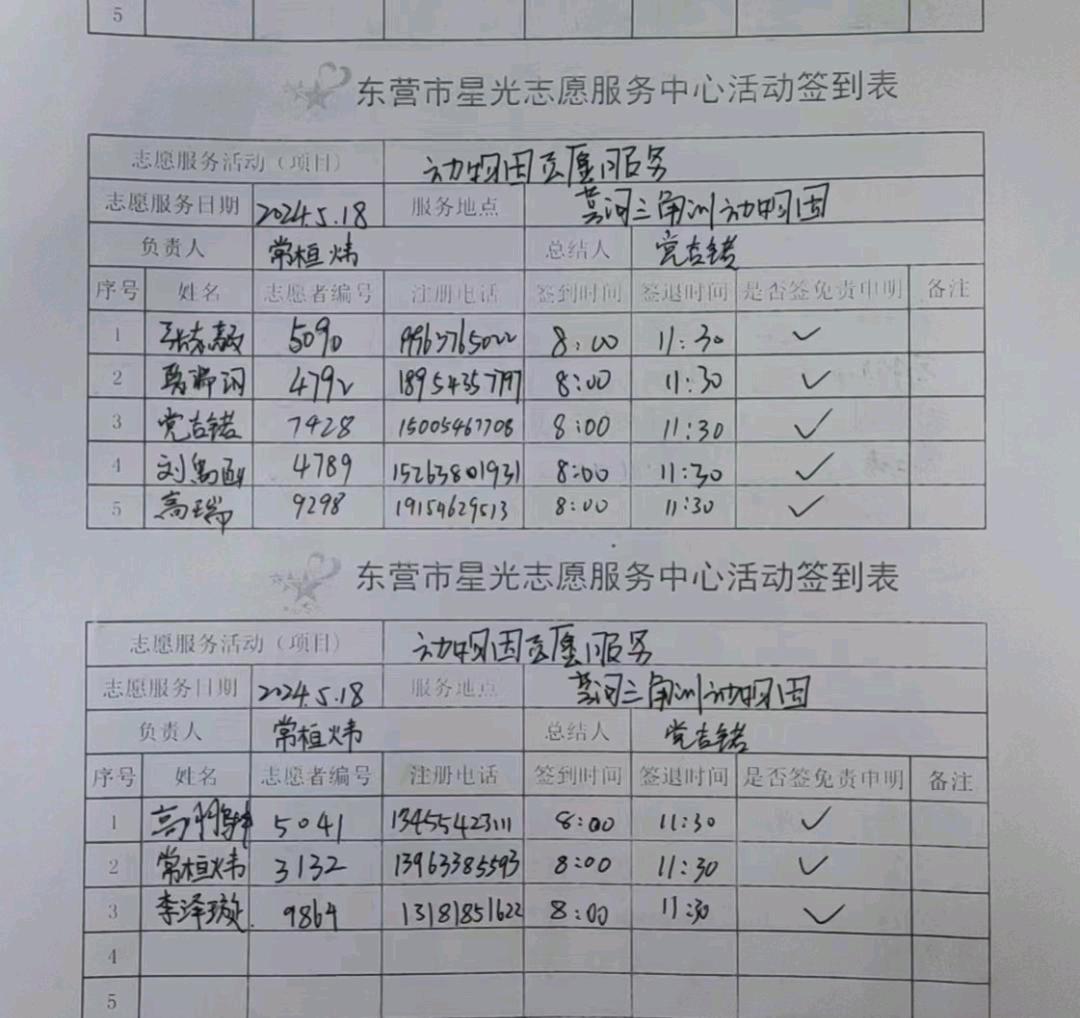 5
东营市星光志愿服务中心活动签到表
志愿服务活动（项目） 动物园志愿服务
志愿服务日期 2024.5.18 服务地点 黄河三角洲动物园
负责人 常桓炜 总结人 党吉锘
序号 姓名 志愿者编号 注册电话 签到时间 签退时间 是否签免责申明 备注
1 5090 8:00 11:30 ✓
2 4792 18954357797 8:00 11:30 ✓
3 党吉锘 7428 15005467708 8:00 11:30 ✓
4 4789 15263801931 8:00 11:30 ✓
5 高瑞 9298 19154629513 8:00 11:30 ✓
东营市星光志愿服务中心活动签到表
志愿服务活动（项目） 动物园志愿服务
志愿服务日期 2024.5.18 服务地点 黄河三角洲动物园
负责人 常桓炜 总结人 党吉锘
序号 姓名 志愿者编号 注册电话 签到时间 签退时间 是否签免责申明 备注
1 5041 13455423111 8:00 11:30 ✓
2 常桓炜 3132 13963385593 8:00 11:30 ✓
3 李泽璇 9864 13181851622 8:00 11:30 ✓
4
5